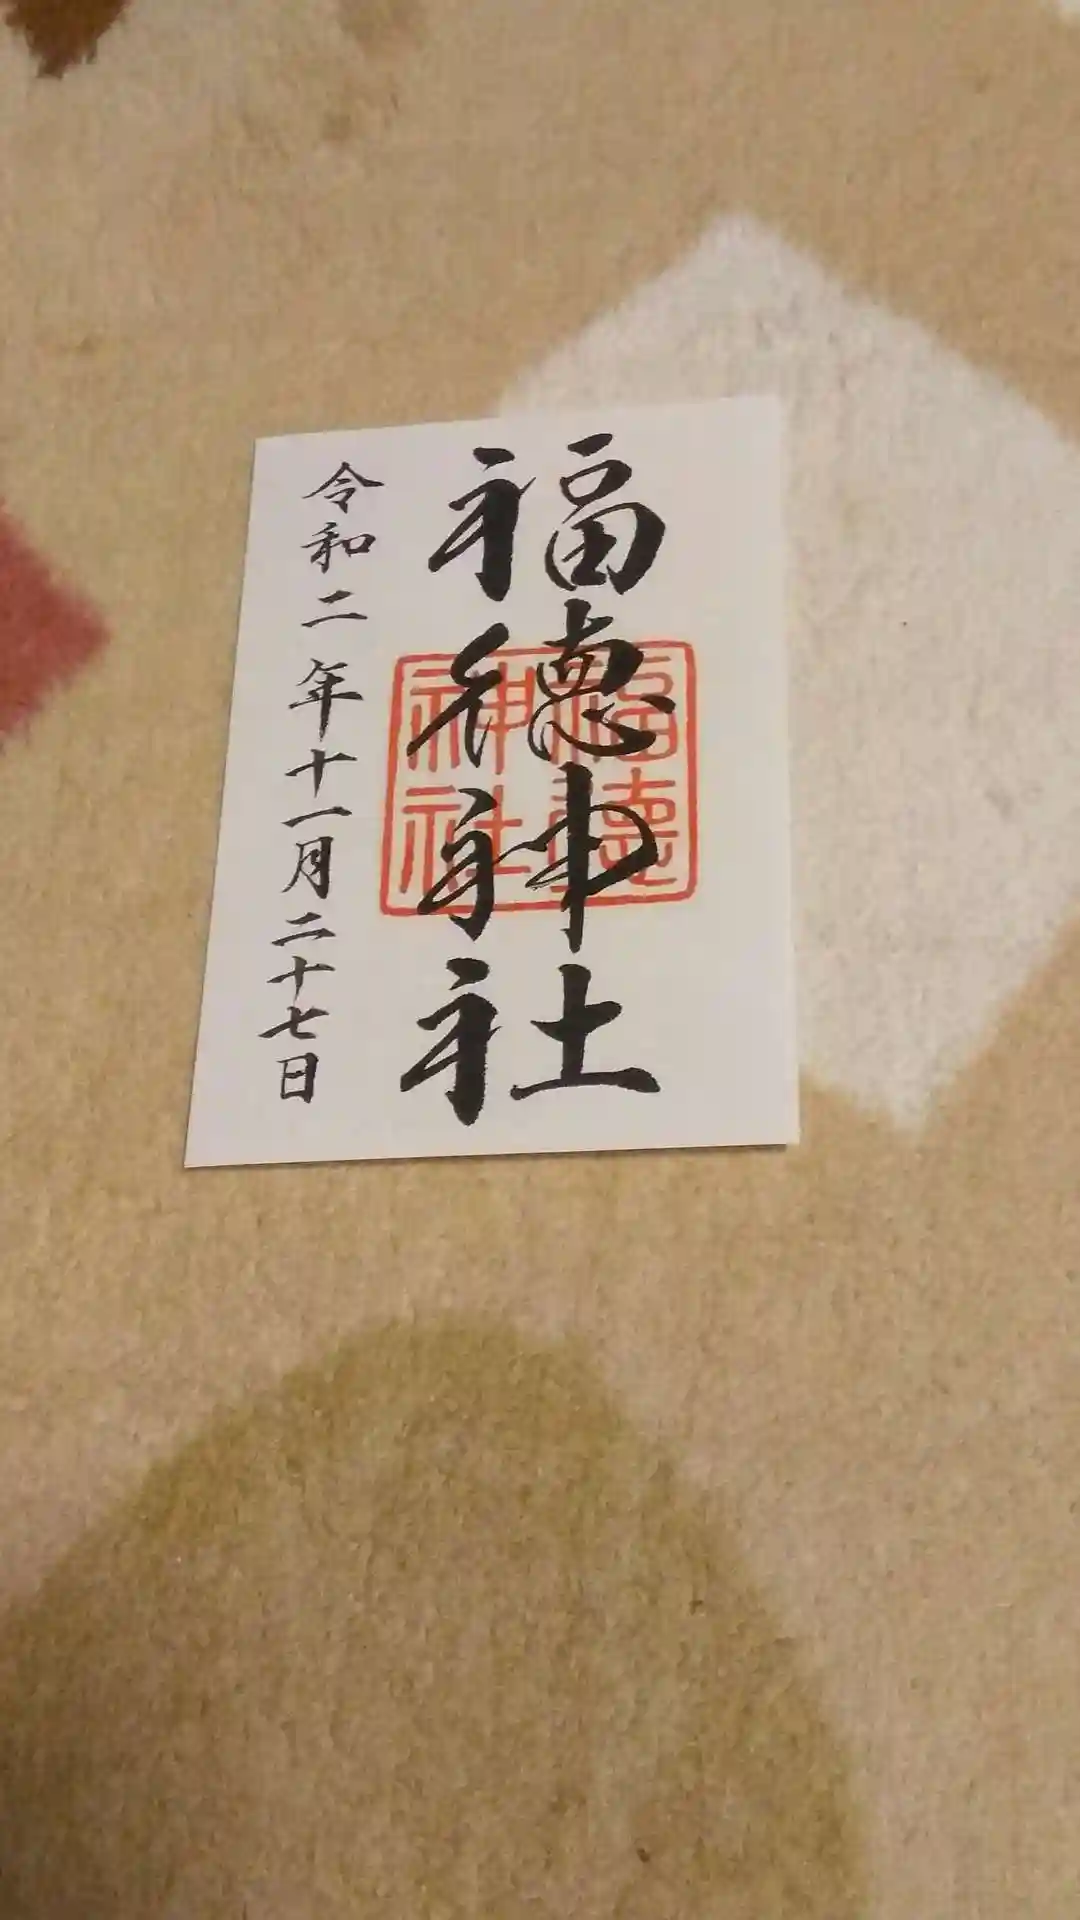 福徳神社
福徳
神社
令和二年十一月二十七日